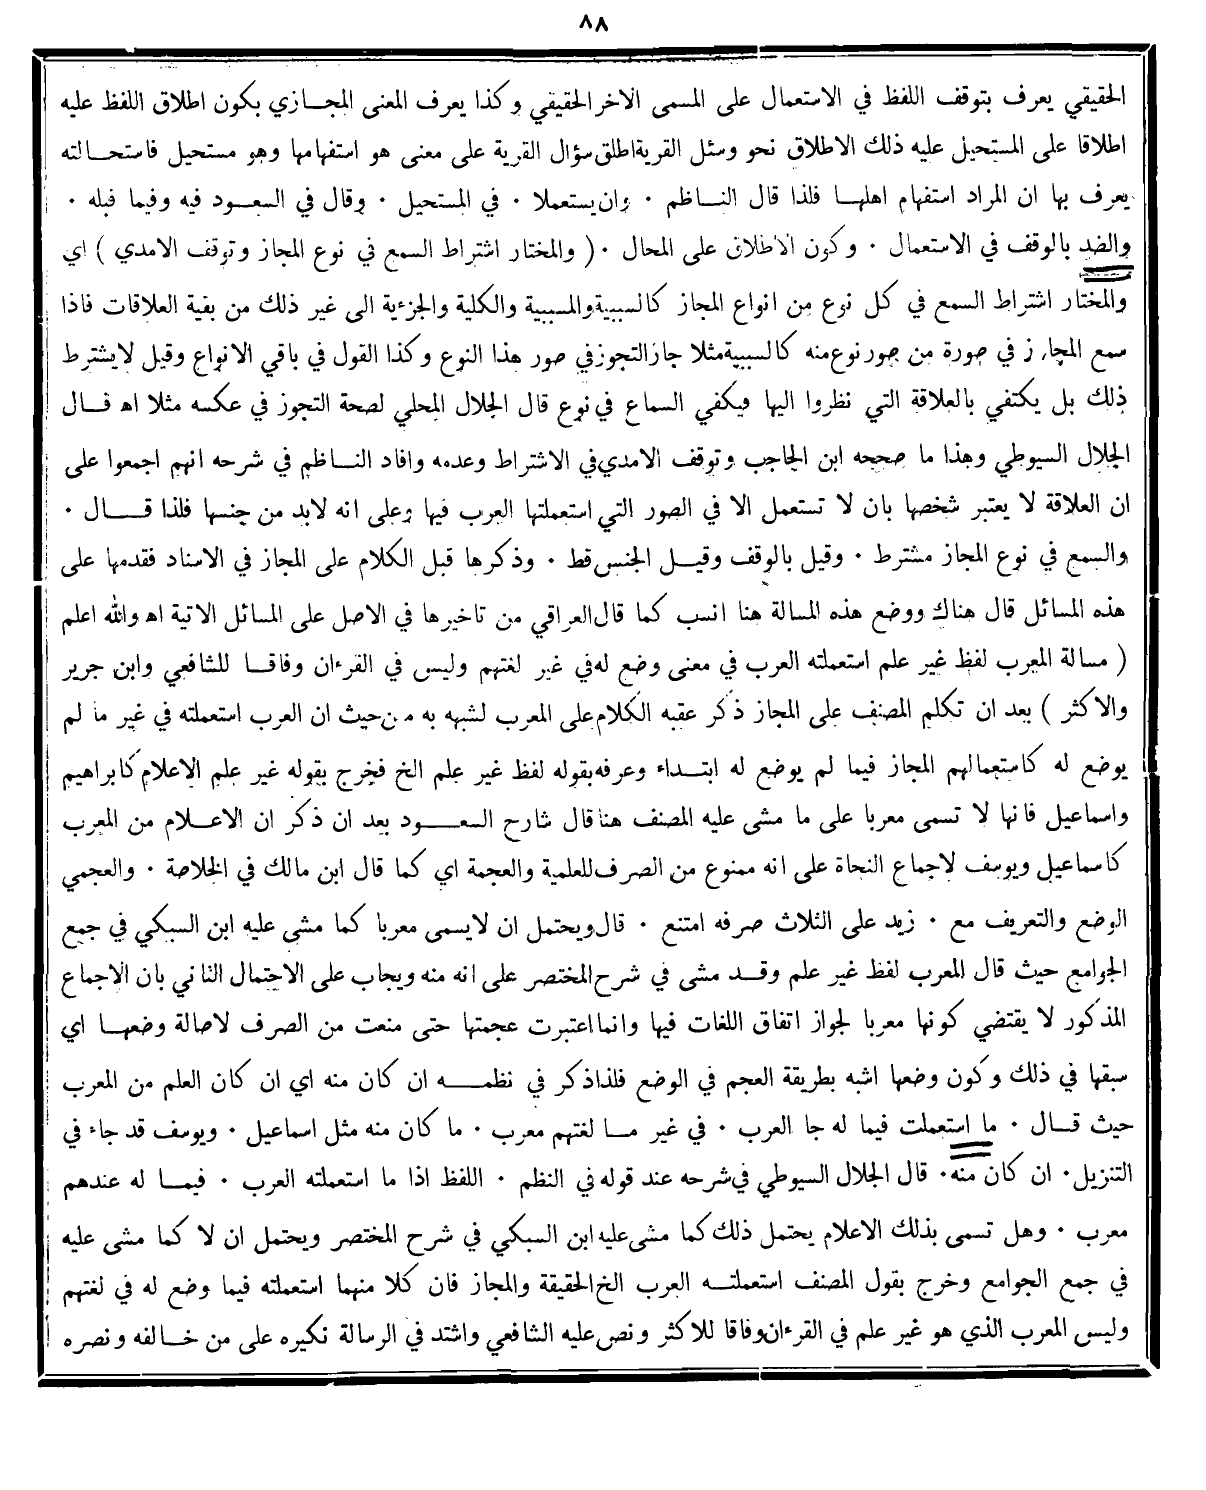 ٨٨
الحقيقي يعرف بتوقف اللفظ في الاستعمال على المسمى الاخر الحقيقي وكذا يعرف المعنى المجازي بكون اطلاق اللفظ عليه
اطلاقا على المستحيل عليه ذلك الاطلاق نحو وسئل القرية اطلق سؤال القرية على معنى هو استفهامها وهو مستحيل فاستحالته
يعرف بها ان المراد استفهام اهلها فلذا قال الناظم ٠ وان يستعملا ٠ في المستحيل ٠ وقال في السعود فيه وفيما قبله ٠
والضد بالوقف في الاستعمال ٠ وكون الاطلاق على المحال ٠ ( والمختار اشتراط السمع في نوع المجاز وتوقف الامدي ) اي
والمختار اشتراط السمع في كل نوع من انواع المجاز كالسببية والمسببية والكلية والجزءية الى غير ذلك من بقية العلاقات فاذا
سمع المجاز في صورة من صور نوع منه كالسببية مثلا جاز التجوز في صور هذا النوع وكذا القول في باقي الانواع وقيل لا يشترط
ذلك بل يكتفي بالعلاقة التي نظروا اليها فيكفي السماع في نوع قال الجلال المحلي لصحة التجوز في عكسه مثلا اه قال
الجلال السيوطي وهذا ما صححه ابن الحاجب وتوقف الامدي في الاشتراط وعدمه وافاد الناظم في شرحه انهم اجمعوا على
ان العلاقة لا يعتبر شخصها بان لا تستعمل الا في الصور التي استعملتها العرب فيها وعلى انه لابد من جنسها فلذا قال ٠
والسمع في نوع المجاز مشترط ٠ وقيل بالوقف وقيل الجنس قط ٠ وذكرها قبل الكلام على المجاز في الاسناد فقدمها على
هذه المسائل قال هناك ووضع هذه المسالة هنا انسب كما قال العراقي من تاخيرها في الاصل على المسائل الاتية اه والله اعلم
( مسالة المعرب لفظ غير علم استعملته العرب في معنى وضع له في غير لغتهم وليس في القرءان وفاقا للشافعي وابن جرير
والاكثر ) بعد ان تكلم المصنف على المجاز ذكر عقبه الكلام على المعرب لشبهه به من حيث ان العرب استعملته في غير ما لم
يوضع له كاستعمالهم المجاز فيما لم يوضع له ابتداء وعرفه بقوله لفظ غير علم الخ فخرج بقوله غير علم الاعلام كابراهيم
واسماعيل فانها لا تسمى معربا على ما مشى عليه المصنف هنا قال شارح السعود بعد ان ذكر ان الاعلام من المعرب
كاسماعيل ويوسف لاجماع النحاة على انه ممنوع من الصرف للعلمية والعجمة اي كما قال ابن مالك في الخلاصة ٠ والعجمي
الوضع والتعريف مع ٠ زيد على الثلاث صرفه امتنع ٠ قال ويحتمل ان لا يسمى معربا كما مشى عليه ابن السبكي في جمع
الجوامع حيث قال المعرب لفظ غير علم وقد مشى في شرح المختصر على انه منه ويجاب على الاحتمال الثاني بان الاجماع
المذكور لا يقتضي كونها معربا لجواز اتفاق اللغات فيها وانما اعتبرت عجمتها حتى منعت من الصرف لاصالة وضعها اي
سبقها في ذلك وكون وضعها اشبه بطريقة العجم في الوضع فلذا ذكر في نظمه ان كان منه اي ان كان العلم من المعرب
حيث قال ٠ ما استعملت فيما له جا العرب ٠ في غير ما لغتهم معرب ٠ ما كان منه مثل اسماعيل ٠ ويوسف قد جاء في
التنزيل ٠ ان كان منه ٠ قال الجلال السيوطي في شرحه عند قوله في النظم ٠ اللفظ اذا ما استعملته العرب ٠ فيما له عندهم
معرب ٠ وهل تسمى بذلك الاعلام يحتمل ذلك كما مشى عليه ابن السبكي في شرح المختصر ويحتمل ان لا كما مشى عليه
في جمع الجوامع وخرج بقول المصنف استعملته العرب الخ الحقيقة والمجاز فان كلا منهما استعملته فيما وضع له في لغتهم
وليس المعرب الذي هو غير علم في القرءان وفاقا للاكثر ونص عليه الشافعي واشتد في الرسالة نكيره على من خالفه ونصره